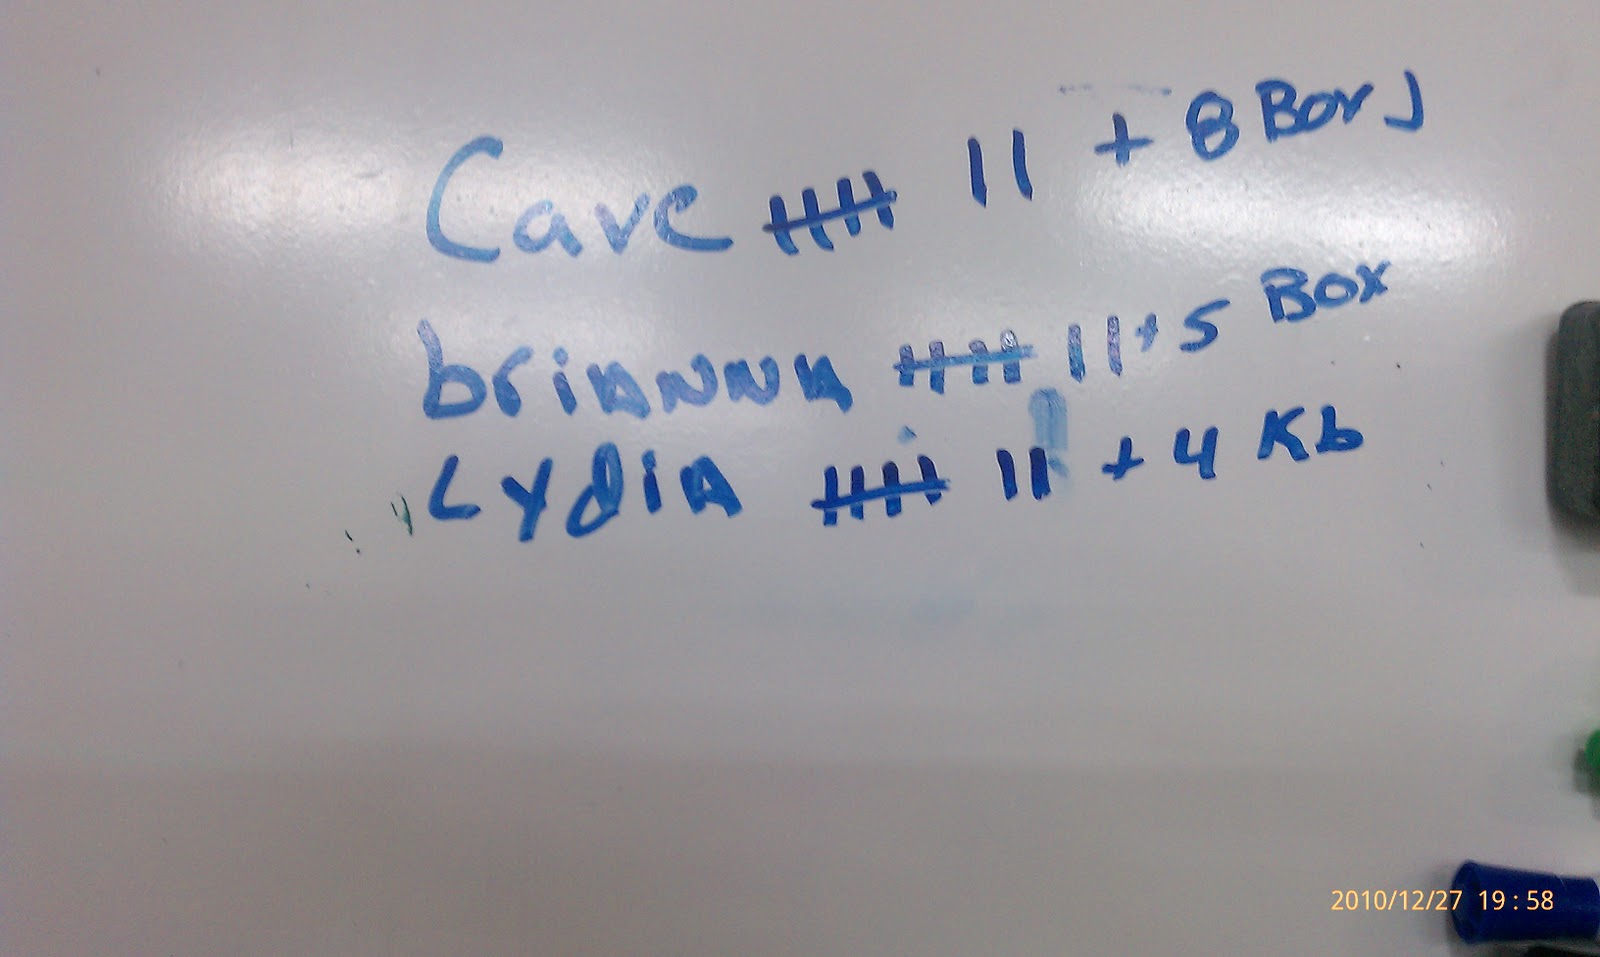 Cave 卌 11 + 8 Box J
briANNA 卌 11 + 5 Box
LydiA 卌 11 + 4 Kb
2010/12/27 19:58